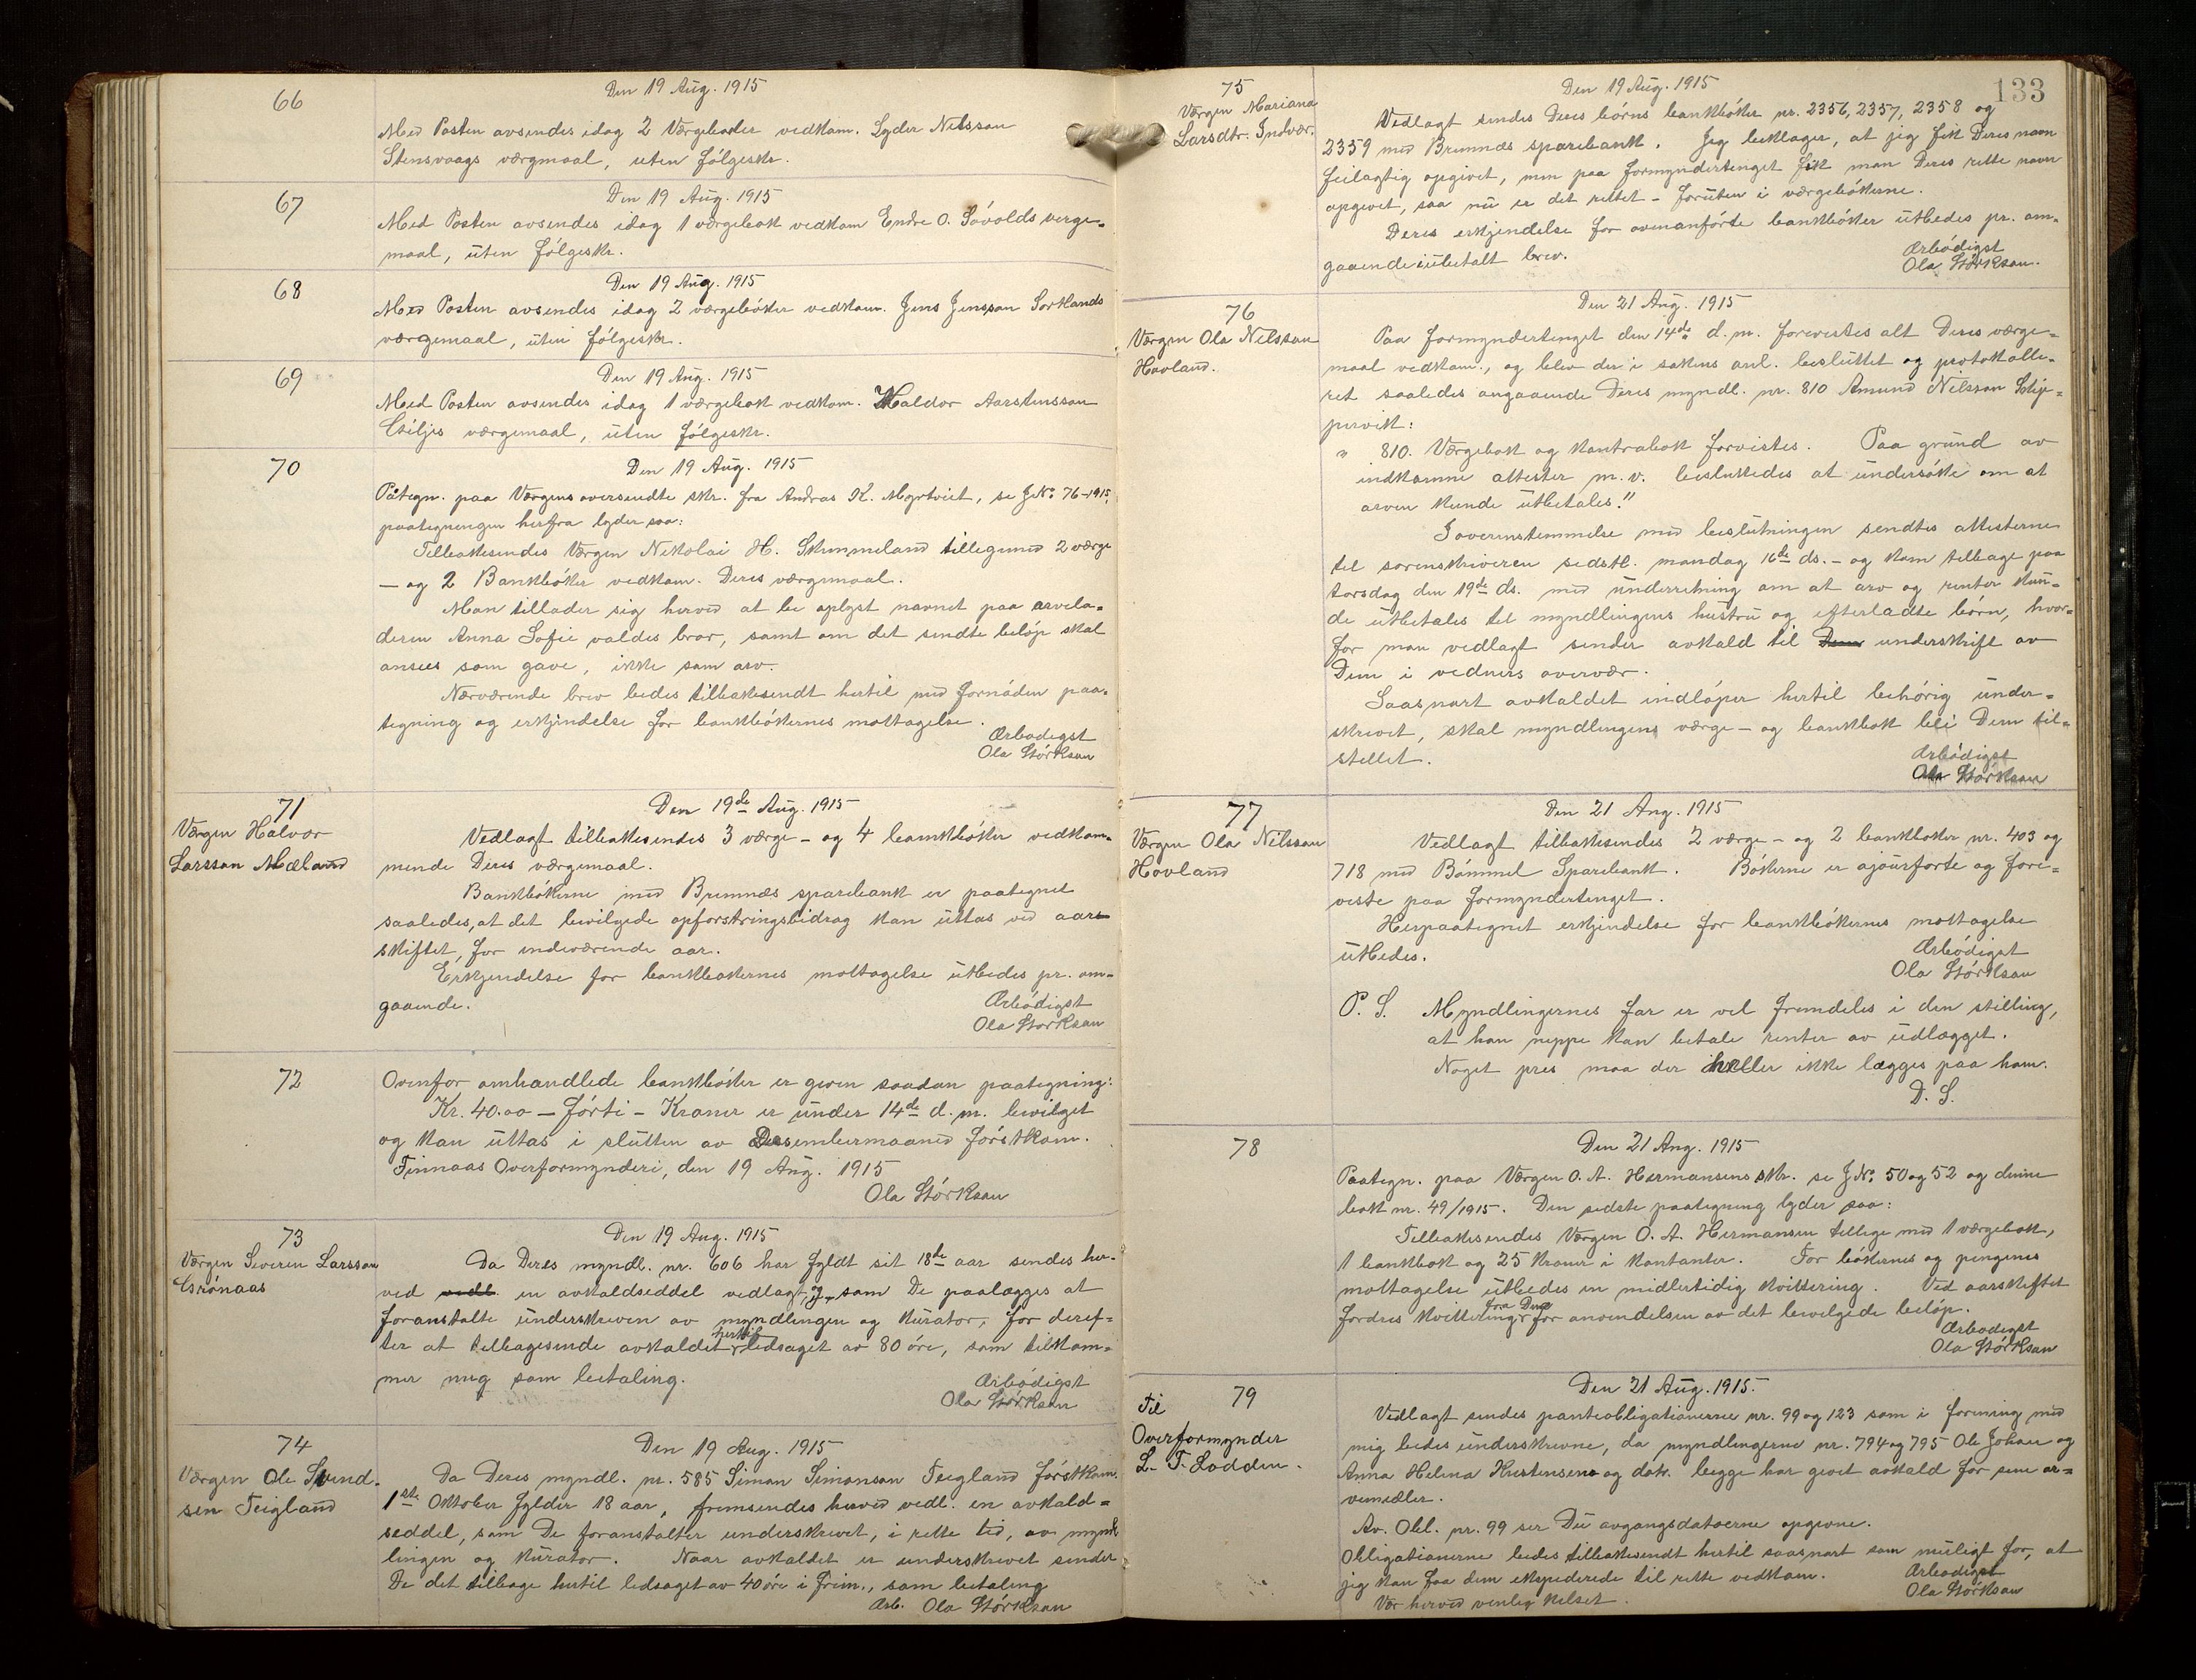 66
Den 19 Aug. 1915
Med Posten avsendes idag 2 Værgebøker vedkom. Lyder Nilsson
Stensvaags værgmaal, uten følgeskr.
67
Den 19 Aug. 1915
Med Posten avsendes idag 1 værgebok vedkom Endre O. Søvolds verge-
maal, uten følgeskr.
68
Den 19 Aug. 1915
Med Posten avsendes idag 2 værgebøker vedkom. Jens Jensson Sortlands
værgemaal, uten følgeskr.
69
Den 19 Aug. 1915
Med Posten avsendes idag 1 værgebok vedkom. Haldor Aarstensson
Eiljes værgemaal, uten følgeskr.
70
Den 19 Aug. 1915
Påtegn. paa Værgens oversendte skr. fra Andras K. Mortveit, se J№ 76-1915,
paategningen herfra lyder saa:
Tilbakesendes Værgen Nikolai H. Skimmeland tillegemed 2 værge
— og 2 Bankbøker vedkom. Deres værgemaal.
Man tillader sig herved at be oplyst navnet paa arvela-
deren Anna Sofie valdes bror, samt om det sendte beløp skal
ansees som gave, ikke som arv.
Nærværende brev bedes tilbakesendt hertil med fornøden paa-
tegning og erkjendelse for bankbøkernes mottagelse.
Ærbødigst
Ola Størksøn
71
Værgen Halvor
Larsson Mæland
Den 19de Aug. 1915
Vedlagt tilbakesendes 3 værge- og 4 bankbøker vedkom-
mende Deres værgemaal.
Bankbøkerne med Bremnæs sparebank er paategnet
saaledes, at det bevilgede opfostringsbidrag kan uttas ved aars
skiftet, for indeværende aar.
Erkjendelse for bankbøkernes mottagelse utbedes pr. om-
gaaende.
Ærbødigst
Ola Størksøn
72
Ovenfor omhandlede bankbøker er given saadan paategning:
Kr. 40.00 — førti — Kroner er under 14de d.m. bevilget
og kan uttas i slutten av Desembermaaned førstkom.
Finnaas Overformynderi, den 19 Aug. 1915
Ola Størksøn
73
Værgen Severin Larsson
Grønaas
Den 19 Aug. 1915
Da Deres myndl. nr. 606 har fyldt sit 18de aar sendes her-
ved vedl. en avkaldseddel vedlagt, og som De paalægges at
foranstalte underskreven av myndlingen og kurator, for deref-
ter at tilbagesende avkaldet hertil ledsaget av 80 øre, som tilkom-
mer mig som betaling.
Ærbødigst
Ola Størksøn
74
Værgen Ole Svend-
sen Teigland
Den 19 Aug. 1915
Da Deres myndl. nr. 585 Simon Simonson Teigland førstkom.
1ste Oktober fylder 18 aar, fremsendes herved vedl. en avkald-
seddel, som De foranstalter underskrevet, i rette tid, av mynd-
lingen og kurator. Naar avkaldet er underskrevet sender
De det tilbage hertil ledsaget av 40 øre i frim., som betaling
Ærb. Ola Størksøn
133
75
Værgen Mariana
Larsdtr. Indvær.
Den 19 Aug. 1915
Vedlagt sendes Deres børns bankbøker nr. 2356, 2357, 2358 og
2359 med Bremnæs sparebank. Jeg beklager, at jeg fik Deres navn
feilagtig opgivet, men paa formyndertinget fik man Deres rette navn
opgivet, saa nu er det rettet - foruten i værgebøkerne.
Deres erkjendelse for ovenanførte bankbøker utbedes pr. om-
gaaende i ubetalt brev.
Ærbødigst
Ola Størksøn.
76
Værgen Ola Nilsson
Hovland.
Den 21 Aug. 1915
Paa formyndertinget den 14de d.m. forevistes alt Deres værge-
maal vedkom., og blev der i sakens anl. besluttet og protokolle-
ret saaledes angaaende Deres myndl. nr. 810 Amund Nilsson Skip-
pervik:
" 810. Værgebok og kontrabok forvistes. Paa grund av
indkomne attester m.v. besluttedes at undersøke om at
arven kunde utbetales."
I overensstemmelse med beslutningen sendtes attesterne
til sorenskriveren sidstl. mandag 16de ds. - og kom tilbage paa
torsdag den 19de ds. med underretning om at arv og renter kun-
de utbetales til myndlingens hustru og efterladte børn, hvor-
for man vedlagt sender avkald til Dem underskrift av
Dem i vedners overvær.
Saasnart avkaldet indløper hertil behørig under-
skrevet, skal myndlingens værge- og bankbok bli Dem til-
stellet.
Ærbødigst
Ola Størksøn
77
Værgen Ola Nilsson
Hovland
Den 21 Aug. 1915
Vedlagt tilbakesendes 2 værge- og 2 bankbøker nr. 403 og
718 med Bømmel Sparebank. Bøkerne er ajourførte og fore-
viste paa formyndertinget.
Herpaategnet erkjendelse for bankbøkernes mottagelse
utbedes.
Ærbødigst
Ola Størksøn
P. S. Myndlingernes far er vel fremdeles i den stilling,
at han neppe kan betale renter av udlægget.
Noget pres maa der heller ikke lægges paa ham.
D. S.
78
Den 21 Aug. 1915
Paategn. paa Værgen O. A. Hermansens skr. se J№ 50 og 52 og denne
bok nr. 49/1915. Den sidste paategning lyder saa:
Tilbakesendes Værgen O. A. Hermansen tillige med 1 værgebok,
1 bankbok og 25 kroner i kontanter. For bøkernes og pengenes
mottagelse utbedes en midlertidig kvittering. Ved aarsskiftet
fordres kvittering fra Dem for anvendelsen av det bevilgede beløp.
Ærbødigst
Ola Størksøn
79
Til
Overformynder
L. T. Lodden.
Den 21 Aug. 1915.
Vedlagt sendes panteobligationerne nr. 99 og 123 som i forening med
mig bedes underskrevne, da myndlingerne nr. 794 og 795 Ole Johan og
Anna Helma Kristensens og datr. begge har givet avkald for sine ar-
vemidler.
Av. Obl. nr. 99 ser Du avgangsdatoerne opgivne.
Obligationerne bedes tilbakesendt hertil saasnart som muligt for, at
jeg kan faa dem ekspederede til rette vedkom.
Vær herved venlig hilset.
Ærbødigst
Ola Størksøn